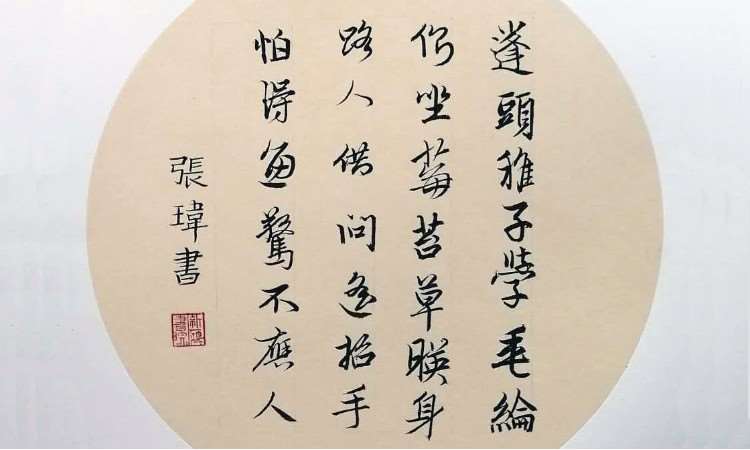 蓬頭稚子學垂綸
側坐莓苔草暎身
路人借問遙招手
怕得魚驚不應人
張瑋書